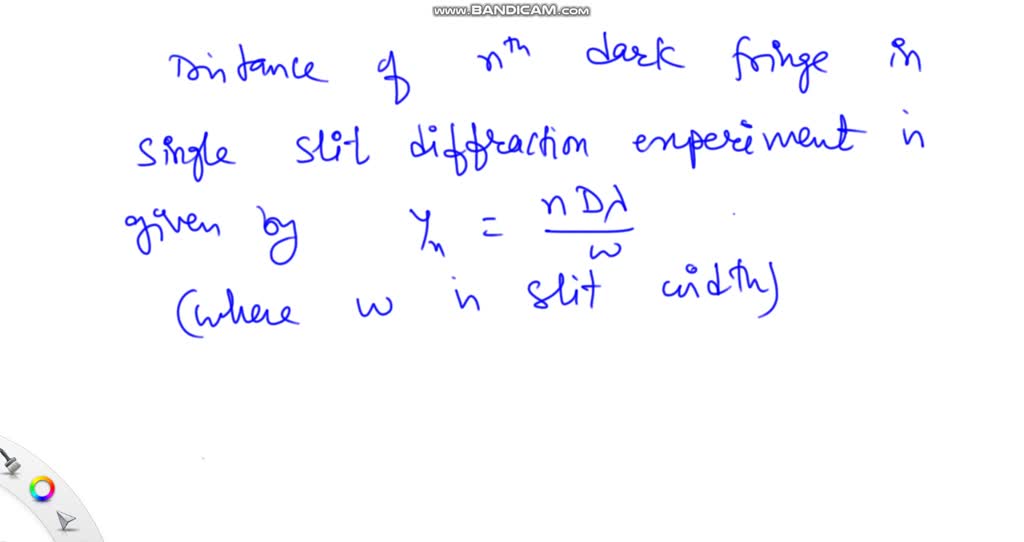 www.BANDICAM.com
Distance of nth dark fringe in
single slit diffraction experiment is
given by Yn = nDλ/w
(where w is slit width)